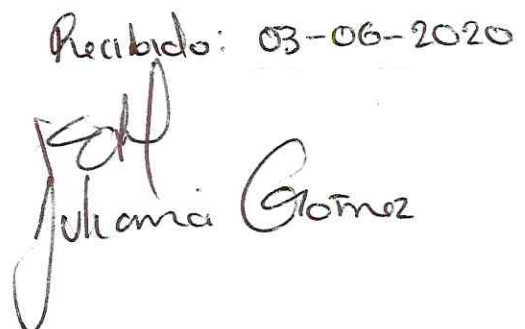 Recibido: 03-06-2020
Juliana Gómez